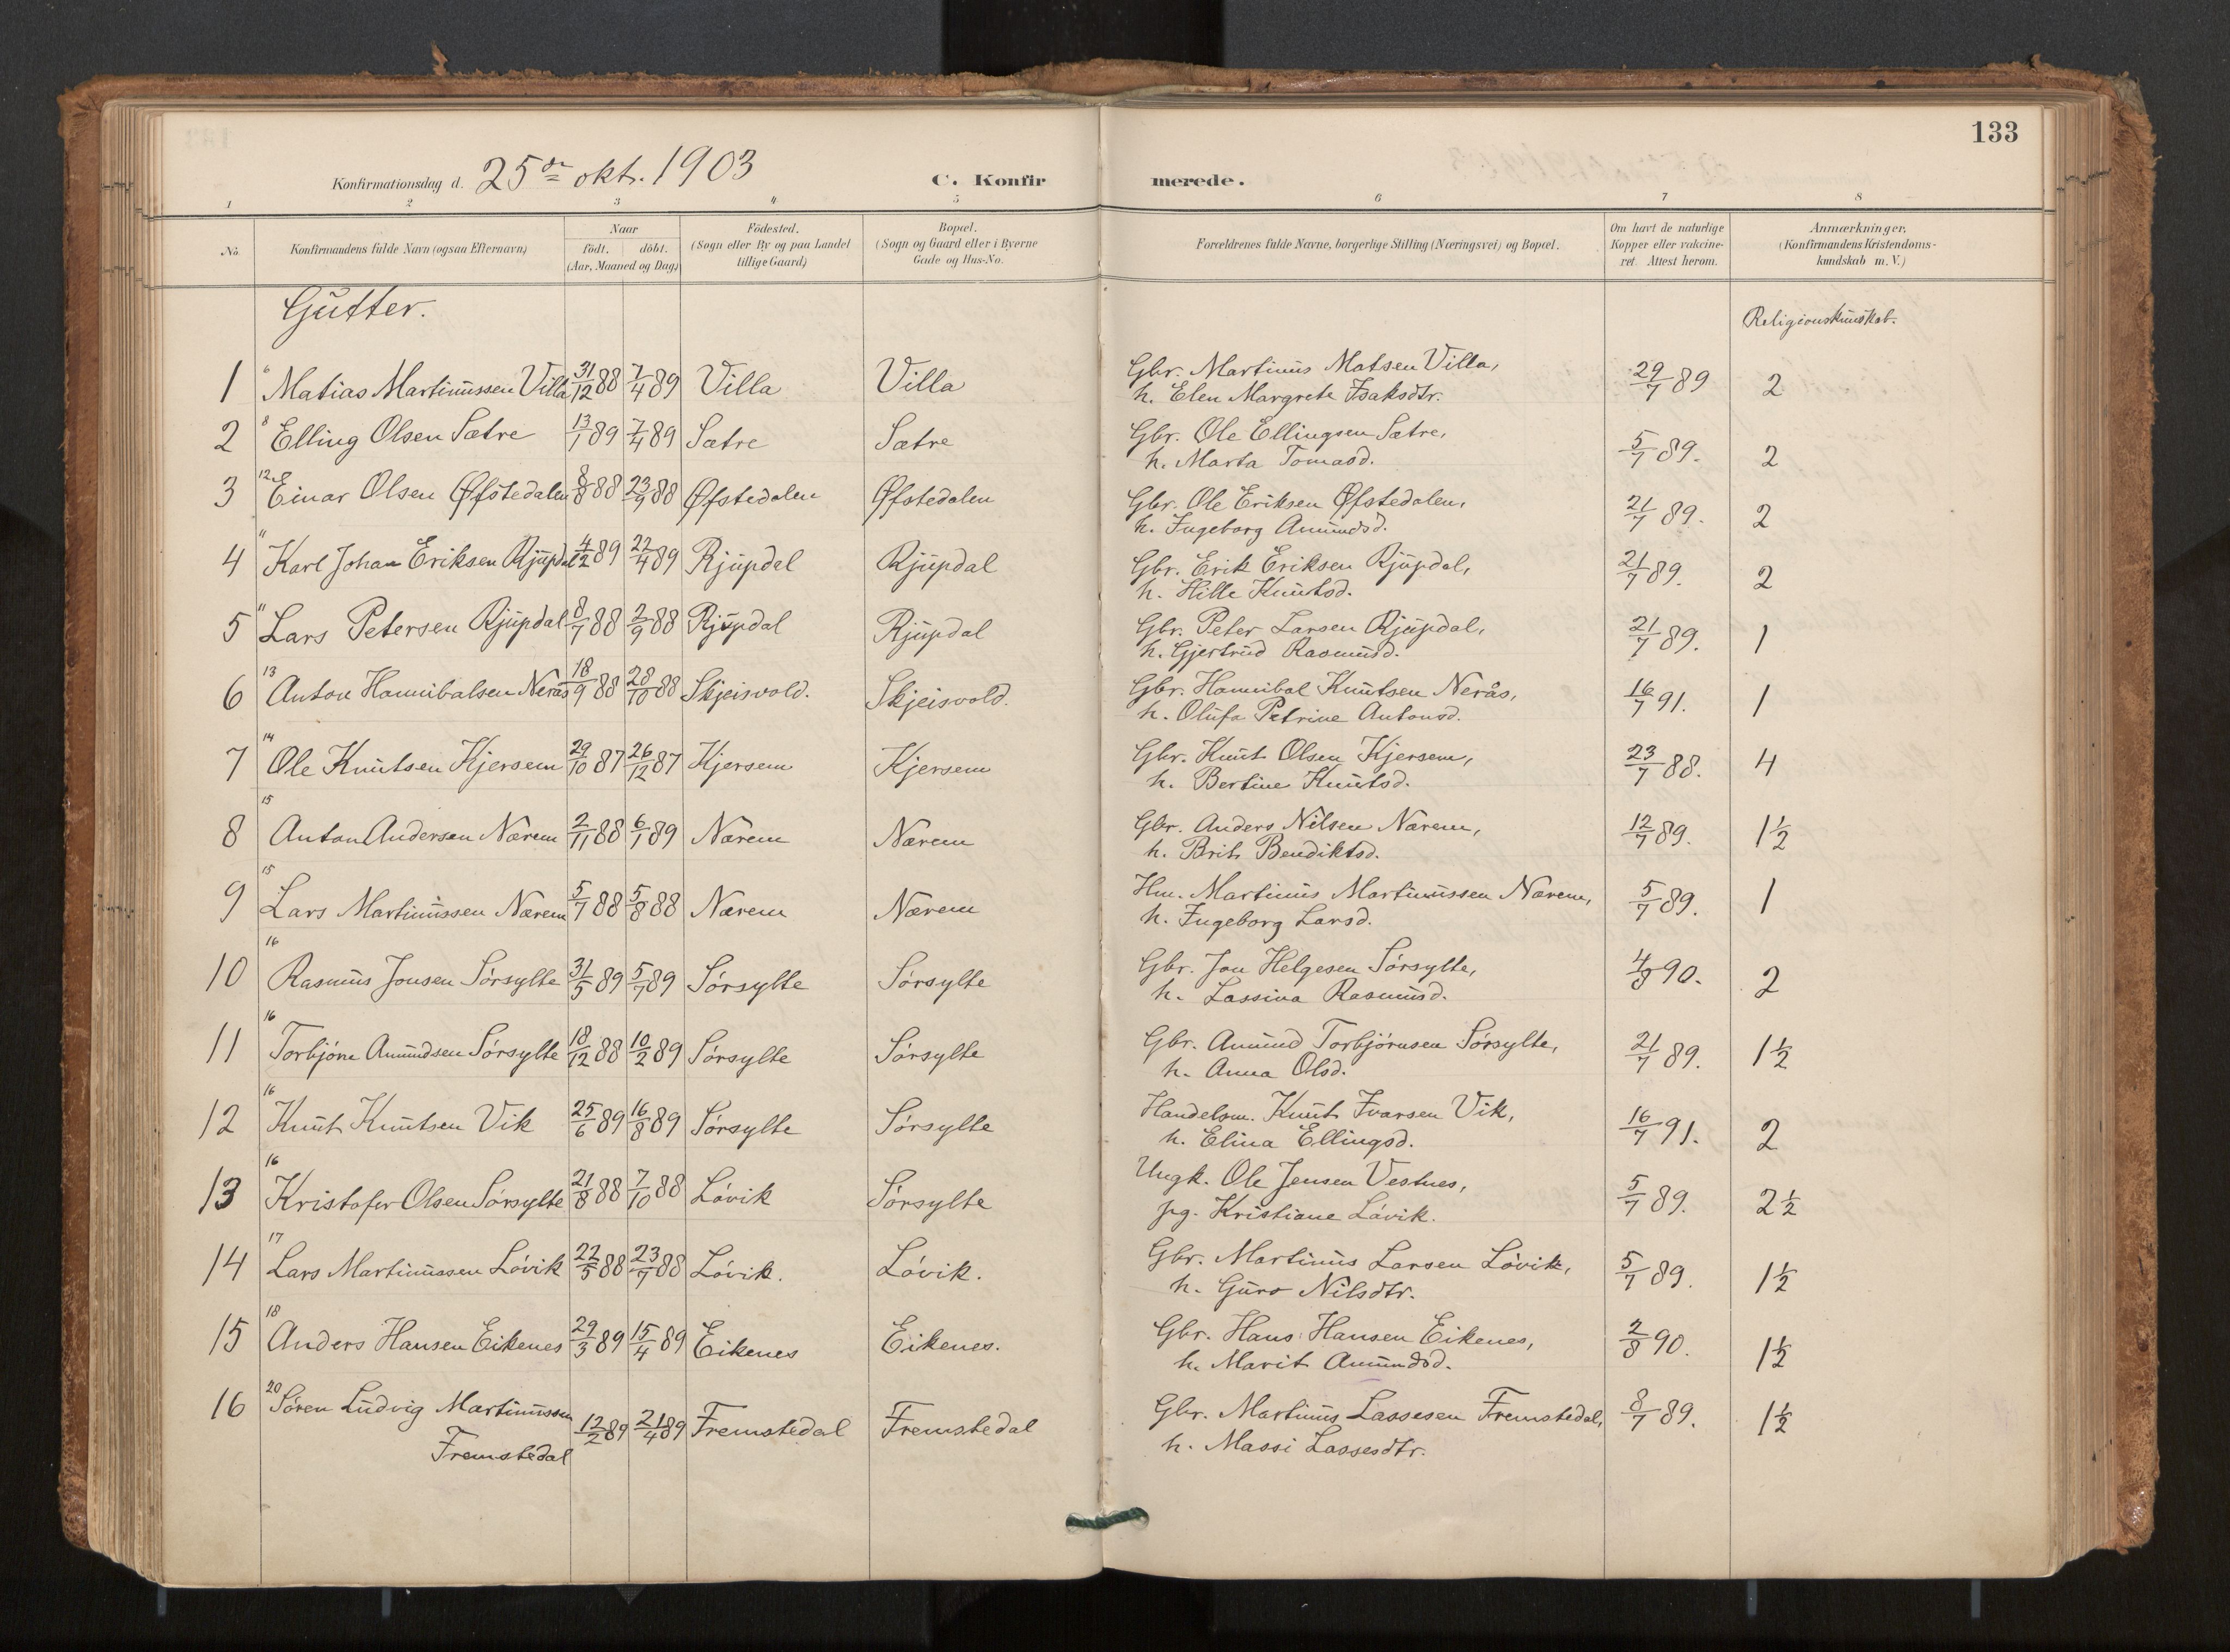 133
Konfirmationsdag d. 25de okt. 1903 C. Konfirmerede.
1 2 3 4 5 6 7 8
No. Konfirmandens fulde Navn (ogsaa Efternavn) Naar født. døbt. (Aar, Maaned og Dag) Fødested. (Sogn eller By og paa Landet tillige Gaard) Bopæl. (Sogn og Gaard eller i Byerne Gade og Hus-No. Forældrenes fulde Navne, borgerlige Stilling (Næringsvei) og Bopæl. Om havt de naturlige Kopper eller vakcineret. Attest herom. Anmærkninger. (Konfirmandens Kristendomskundskab m. V.)
Gutter. Religionskundskab.
1 6 Matias Martinussen Villa 31/12 88 7/4 89 Villa Villa Gbr. Martinus Matsen Villa, 29/7 89 2
h. Elen Margrete Isaksdtr.
2 8 Elling Olsen Sætre 13/1 89 7/4 89 Sætre Sætre Gbr. Ole Ellingsen Sætre, 5/7 89. 2
h. Marta Tomasd.
3 12 Einar Olsen Øfstedalen 8/8 88 23/9 88 Øfstedalen Øfstedalen Gbr. Ole Eriksen Øfstedalen, 21/7 89. 2
h. Ingeborg Amundsd.
4 11 Karl Johan Eriksen Rjupdal 4/2 89 22/4 89 Rjupdal Rjupdal Gbr. Erik Eriksen Rjupdal, 21/7 89. 2
h. Hille Knutsd.
5 11 Lars Petersen Rjupdal 8/7 88 2/9 88 Rjupdal Rjupdal Gbr. Peter Larsen Rjupdal, 21/7 89. 1
h. Gjertrud Rasmusd.
6 13 Anton Hannibalsen Nerås 18/9 88 28/10 88 Skjeisvold. Skjeisvold. Gbr. Hannibal Knutsen Nerås, 16/7 91. 1
h. Olufa Petrine Antonsd.
7 14 Ole Knutsen Kjersem 29/10 87 26/12 87 Kjersem Kjersem Gbr. Knut Olsen Kjersem, 23/7 88. 4
h. Bertine Knutsd.
8 15 Anton Andersen Nærem 2/11 88 6/1 89 Nærem Nærem Gbr. Anders Nilsen Nærem, 12/7 89. 1½
h. Brit Bendiktsd.
9 15 Lars Martinussen Nærem 5/7 88 5/8 88 Nærem Nærem Hm. Martinus Martinussen Nærem, 5/7 89. 1
h. Ingeborg Larsd.
10 16 Rasmus Jonsen Sørsylte 31/5 89 5/7 89 Sørsylte Sørsylte Gbr. Jon Helgesen Sørsylte, 4/8 90. 2
h. Lassina Rasmusd.
11 16 Torbjørn Amundsen Sørsylte 18/12 88 10/2 89 Sørsylte Sørsylte Gbr. Amund Torbjørnsen Sørsylte, 21/7 89. 1½
h. Anna Olsd.
12 16 Knut Knutsen Vik 25/6 89 16/8 89 Sørsylte Sørsylte Handelsm. Knut Ivarsen Vik, 16/7 91. 2
h. Elina Ellingsd.
13 16 Kristofer Olsen Sørsylte 21/8 88 7/10 88 Løvik Sørsylte Ungk. Ole Jensen Vestnes, 5/7 89. 2½
pg. Kristiane Løvik.
14 17 Lars Martinussen Løvik 22/5 88 23/7 88 Løvik. Løvik. Gbr. Martinus Larsen Løvik, 5/7 89. 1½
h. Guro Nilsdtr.
15 18 Anders Hansen Eikenes 29/3 89 15/4 89 Eikenes Eikenes. Gbr. Hans Hansen Eikenes, 2/8 90. 1½
h. Marit Amundsd.
16 20 Søren Ludvig Martinussen Fremstedal 12/2 89 21/4 89 Fremstedal Fremstedal Gbr. Martinus Lassesen Fremstedal, 8/7 89. 1½
h. Massi Lassesdtr.